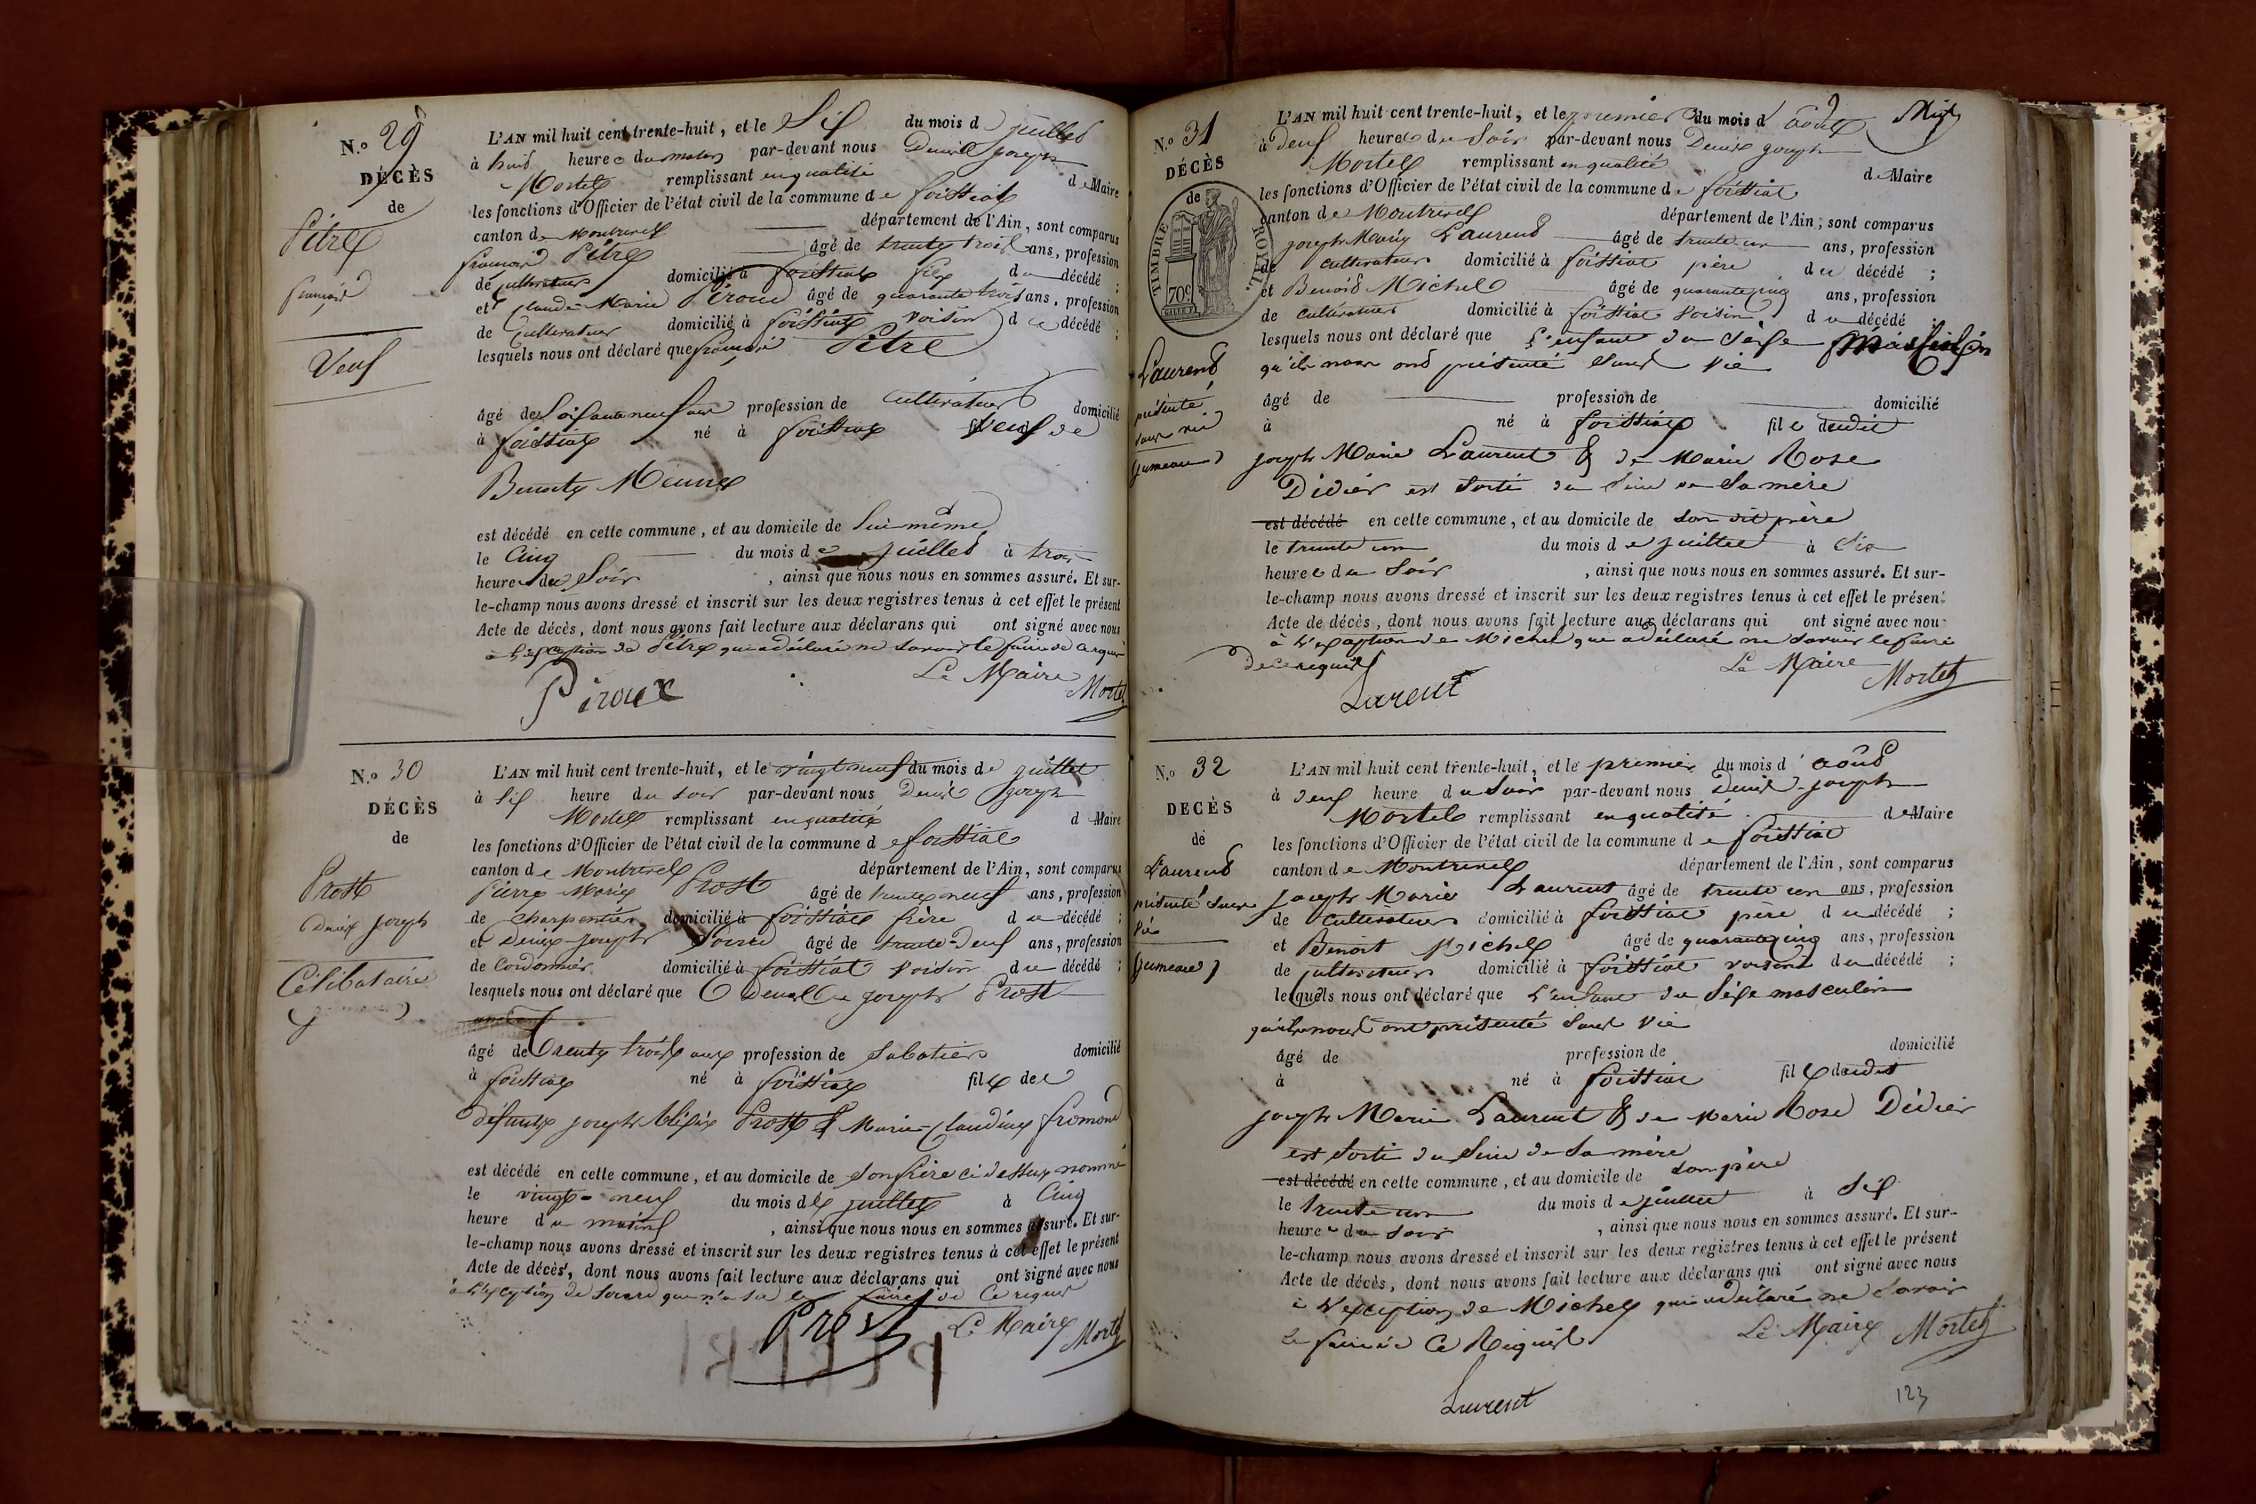 N.º 29
DÉCÈS
de
Pitre
françois
Veuf
L'AN mil huit cent trente-huit, et le Six du mois de juillet
à huit heures du matin par-devant nous Denis joseph
Mortel remplissant en qualité de Maire
les fonctions d'Officier de l'état civil de la commune de foissiat
canton de Montrevel département de l'Ain, sont comparus
françois Pitre âgé de trente trois ans, profession
de cultivateur domicilié à foissiat fils du décédé ;
et claude Marie Piroux âgé de quarante trois ans, profession
de Cultivateur domicilié à foissiat voisin du décédé ;
lesquels nous ont déclaré que françois Pitre
âgé de Soixante neuf ans profession de Cultivateur domicilié
à foissiat né à foissiat veuf de
Benoite
est décédé en cette commune, et au domicile de Lui même
le Cinq du mois de juillet à trois
heures du Soir, ainsi que nous nous en sommes assuré. Et sur-
le-champ nous avons dressé et inscrit sur les deux registres tenus à cet effet le présent
Acte de décès, dont nous avons fait lecture aux déclarans qui ont signé avec nous
à L'exception de Pitre qui a déclaré ne Savoir le faire de ce requis
Le Maire
Piroux Mortel
N.º 30
DÉCÈS
de
Prost
Denis joseph
Célibataire
L'AN mil huit cent trente-huit, et le vingt neuf du mois de juillet
à Six heure du soir par-devant nous Denis joseph
Mortel remplissant en qualité d Maire
les fonctions d'Officier de l'état civil de la commune de foissiat
canton de Montrevel département de l'Ain, sont comparus
Pierre Marie Prost âgé de trente neuf ans, profession
de Charpentier domicilié à foissiat frère du décédé ;
et Denis joseph âgé de trente Deux ans, profession
de Cordonnier domicilié à foissiat voisin du décédé ;
lesquels nous ont déclaré que Denis joseph Prost
âgé de Trente trois ans profession de Sabotier domicilié
à foissiat né à foissiat fils de
défunts joseph Prost & Marie Claudine fromont
est décédé en cette commune, et au domicile de Son frère ci dessus nommé
le vingt-neuf du mois de juillet à Cinq
heure du matin, ainsi que nous nous en sommes assuré. Et sur-
le-champ nous avons dressé et inscrit sur les deux registres tenus à cet effet le présent
Acte de décès, dont nous avons fait lecture aux déclarans qui ont signé avec nous
à L'exception de qui n'a su le faire de Ce requis
Prost Le Maire Mortel
N.º 31
DÉCÈS
de
TIMBRE ROYAL
70c
Laurent
présenté
sans vie
(jumeau)
L'AN mil huit cent trente-huit, et le premier du mois d'août
à deux heures du Soir par-devant nous Denis joseph
Mortel remplissant en qualité de Maire
les fonctions d'Officier de l'état civil de la commune de foissiat
canton de Montrevel département de l'Ain, sont comparus
joseph Marie Laurent âgé de trente un ans, profession
de cultivateur domicilié à foissiat père du décédé ;
et Benoit Michel âgé de quarante cinq ans, profession
de cultivateur domicilié à foissiat Voisin du décédé ;
lesquels nous ont déclaré que L'enfant du Sexe Masculin
qu'ils nous ont présenté Sans Vie
âgé de profession de domicilié
à né à foissiat fils dudit
joseph Marie Laurent & de Marie Rose
Didier est Sorti du Sein de Sa mère
est décédé en cette commune, et au domicile de son dit père
le trente un du mois de juillet à Six
heures du Soir, ainsi que nous nous en sommes assuré. Et sur-
le-champ nous avons dressé et inscrit sur les deux registres tenus à cet effet le présent
Acte de décès, dont nous avons fait lecture aux déclarans qui ont signé avec nou
à L'exception de Michel qui a déclaré ne Savoir le faire
de ce requis Le Maire Mortel
Laurent
N.º 32
DÉCÈS
de
Laurent
présenté Sans
Vie
(jumeau)
L'AN mil huit cent trente-huit, et le premier du mois d'août
à deux heure du Soir par-devant nous Denis joseph
Mortel remplissant en qualité de Maire
les fonctions d'Officier de l'état civil de la commune de foissiat
canton de Montrevel département de l'Ain, sont comparus
joseph Marie Laurent âgé de trente un ans, profession
de cultivateur domicilié à foissiat père du décédé ;
et Benoit Michel âgé de quarante cinq ans, profession
de cultivateur domicilié à foissiat voisin du décédé ;
lesquels nous ont déclaré que L'enfant du Sexe masculin
qu'ils nous ont présenté Sans Vie
âgé de profession de domicilié
à né à foissiat fils dudit
joseph Marie Laurent & de Marie Rose Didier
est Sorti du Sein de Sa mère
est décédé en cette commune, et au domicile de son père
le trente un du mois de juillet à Six
heures du Soir, ainsi que nous nous en sommes assuré. Et sur-
le-champ nous avons dressé et inscrit sur les deux registres tenus à cet effet le présent
Acte de décès, dont nous avons fait lecture aux déclarans qui ont signé avec nous
à L'exception de Michel qui a déclaré ne Savoir
le faire de Ce Requis Le Maire Mortel
Laurent
123